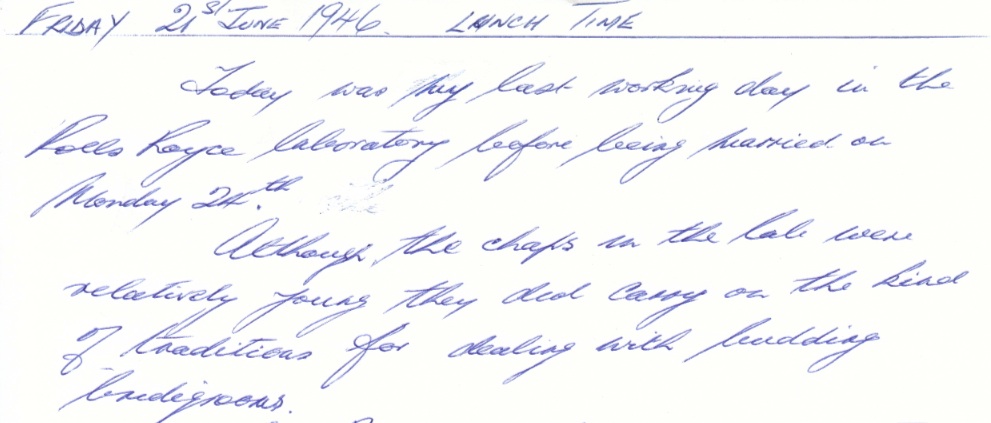 FRIDAY 21st JUNE 1946. LUNCH TIME
Today was my last working day in the
Rolls Royce laboratory before being married on
Monday 24th.
Although the chaps in the lab were
relatively young they did carry on the kind
of traditions for dealing with budding
bridegrooms.